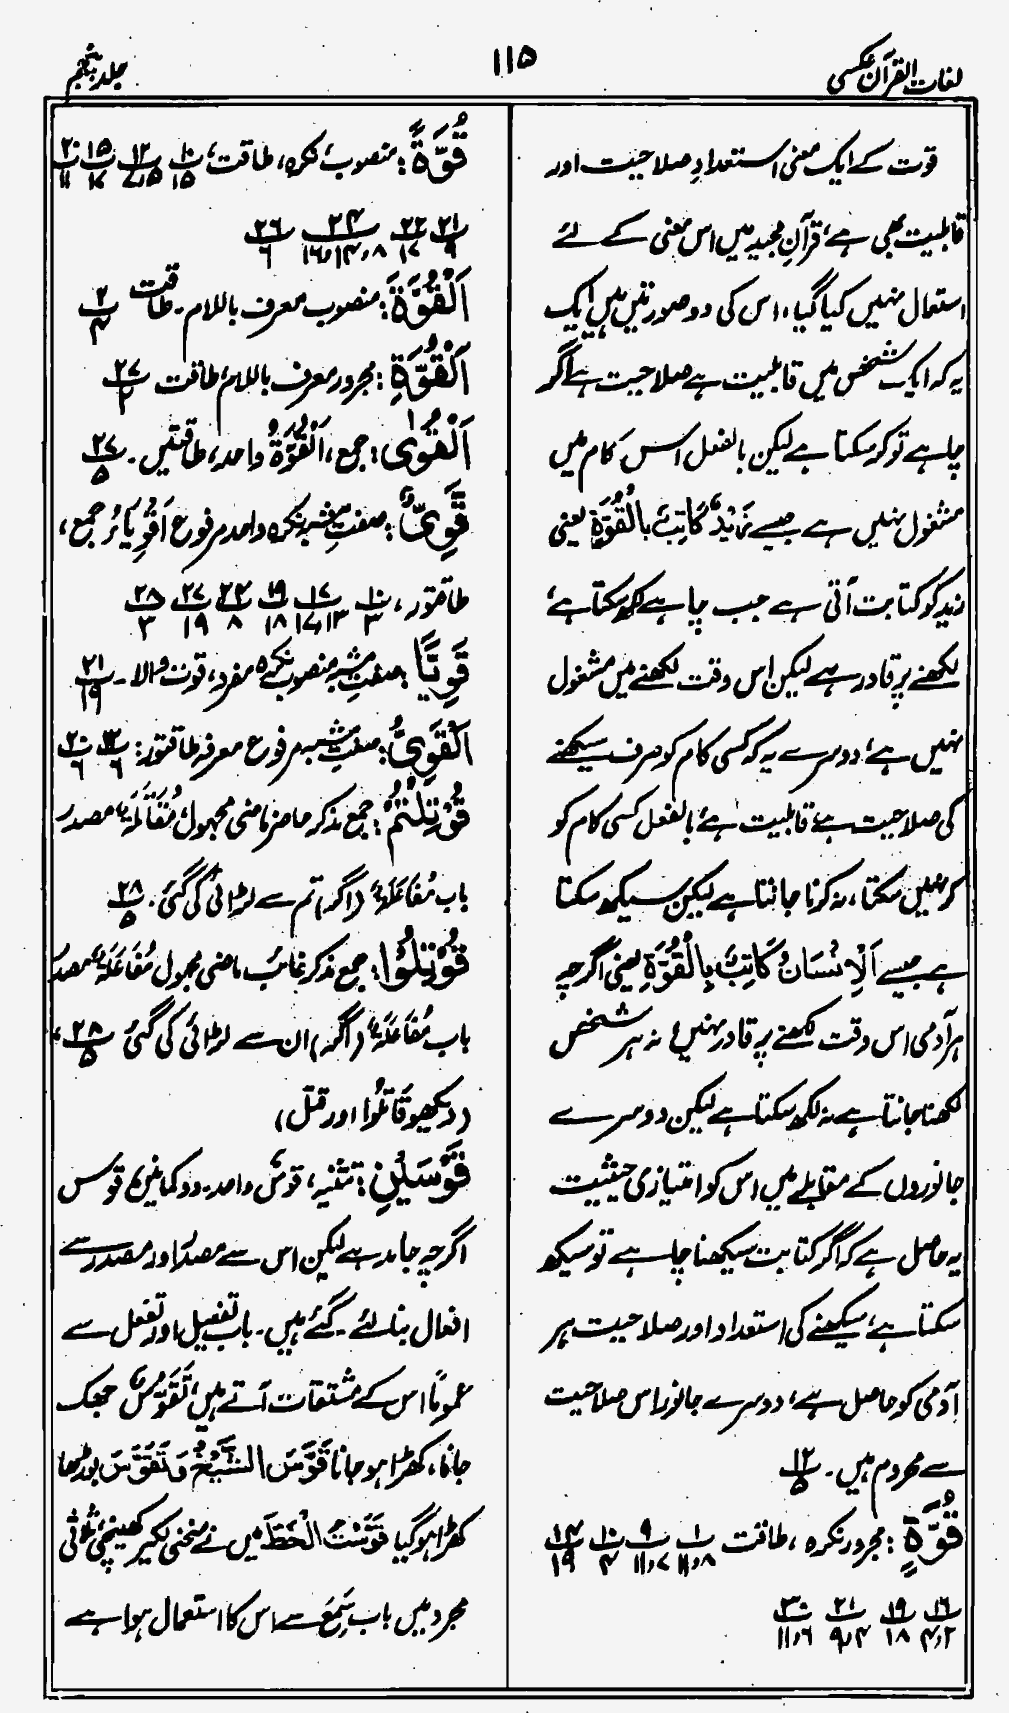 لغات القرآن عکسی
۱۱۵
جلد پنجم
قوت کے ایک معنی استعداد صلاحیت اور
قابلیت بھی ہے، قرآن مجید میں اس معنی کے لئے
استعمال نہیں کیا گیا، اس کی دو صورتیں ہیں ایک
یہ کہ ایک شخص میں قابلیت ہے صلاحیت ہے اگر
چاہے تو کر سکتا ہے لیکن بالفعل اس کام میں
مشغول نہیں ہے جیسے زَیْدٌ کَاتِبٌ بِالْقُوَّۃِ یعنی
زید کو کتابت آتی ہے جب چاہے لکھ سکتا ہے،
لکھنے پر قادر ہے لیکن اس وقت لکھنے میں مشغول
نہیں ہے، دوسرے یہ کہ کسی کام کو صرف سیکھنے
کی صلاحیت ہے، قابلیت ہے، بالفعل کسی کام کو
کر نہیں سکتا، نہ کرنا جانتا ہے لیکن سیکھ سکتا
ہے جیسے اَلْاِنْسَانُ کَاتِبٌ بِالْقُوَّۃِ یعنی اگرچہ
ہر آدمی اس وقت لکھنے پر قادر نہیں، نہ ہر شخص
لکھنا جانتا ہے نہ لکھ سکتا ہے لیکن دوسرے
جانوروں کے مقابلے میں اس کو امتیازی حیثیت
یہ حاصل ہے کہ اگر کتابت سیکھنا چاہے تو سیکھ
سکتا ہے، سیکھنے کی استعداد اور صلاحیت ہر
آدمی کو حاصل ہے، دوسرے جانور اس صلاحیت
سے محروم ہیں۔ ۱۲/۵
قُوَّۃٍ: مجرور نکرہ، طاقت ۱/۸،۱۱ ۹/۷،۱۱ ۱۰/۴ ۱۴/۱۹
۱۶/۲،۴ ۱۹/۱۸ ۲۱/۴،۹ ۳۰/۶،۱۱
قُوَّۃً: منصوب، نکرہ، طاقت، ۱۰/۱۵ ۱۲/۵،۷ ۱۵/۱۷ ۲۰/۱۱
۲۱/۹ ۲۲/۱۷ ۲۴/۸،۱۴،۱۶ ۲۶/۶
اَلْقُوَّۃَ: منصوب معرف باللام۔ طاقت ۲/۴
اَلْقُوَّۃِ: مجرور معرف باللام، طاقت ۲۷/۲
اَلْقُوٰی: جمع، اَلْقُوَّۃُ واحد، طاقتیں۔ ۲۷/۵
قَوِیٌّ: صفت مشبہ نکرہ واحد مرفوع اَقْوِیَاءُ جمع،
طاقتور، ۱۰/۳ ۱۷/۱۳،۱۷ ۱۹/۱۸ ۲۴/۸ ۲۷/۱۹ ۲۸/۳
قَوِیًّا: صفت مشبہ منصوب نکرہ مفرد، قوت والا۔ ۲۱/۱۹
اَلْقَوِیُّ: صفت مشبہ مرفوع معرفہ طاقتور: ۱۲/۶ ۲۰/۶
قُوْتِلْتُمْ: جمع مذکر حاضر ماضی مجہول مُقَاتَلَۃٌ مصدر
باب مُفَاعَلَۃٌ (اگر) تم سے لڑائی کی گئی۔ ۲۸/۵
قُوْتِلُوْا: جمع مذکر غائب ماضی مجہول مُفَاعَلَۃٌ مصدر
باب مُفَاعَلَۃٌ (اگر) ان سے لڑائی کی گئی ۲۸/۵،
(دیکھو قَاتَلُوا اور قتل)
قَوْسَیْنِ: تثنیہ، قوسٌ واحد۔ دو کمانیں، قوس
اگرچہ جامد ہے لیکن اس سے مصدر اور مصدر سے
افعال بنالئے گئے ہیں۔ باب تفعیل اور تفعل سے
عموماً اس کے مشتقات آتے ہیں، تَقَوُّسٌ جھک
جانا، کھڑا ہو جانا قَوَّسَ الشَّیْخُ وَ تَقَوَّسَ بوڑھا
کھڑا ہو گیا قَوَّسْتُ الْخَطَّ میں نے منحنی لکیر کھینچی، ثلاثی
مجرد میں باب سَمِعَ سے اس کا استعمال ہوا ہے